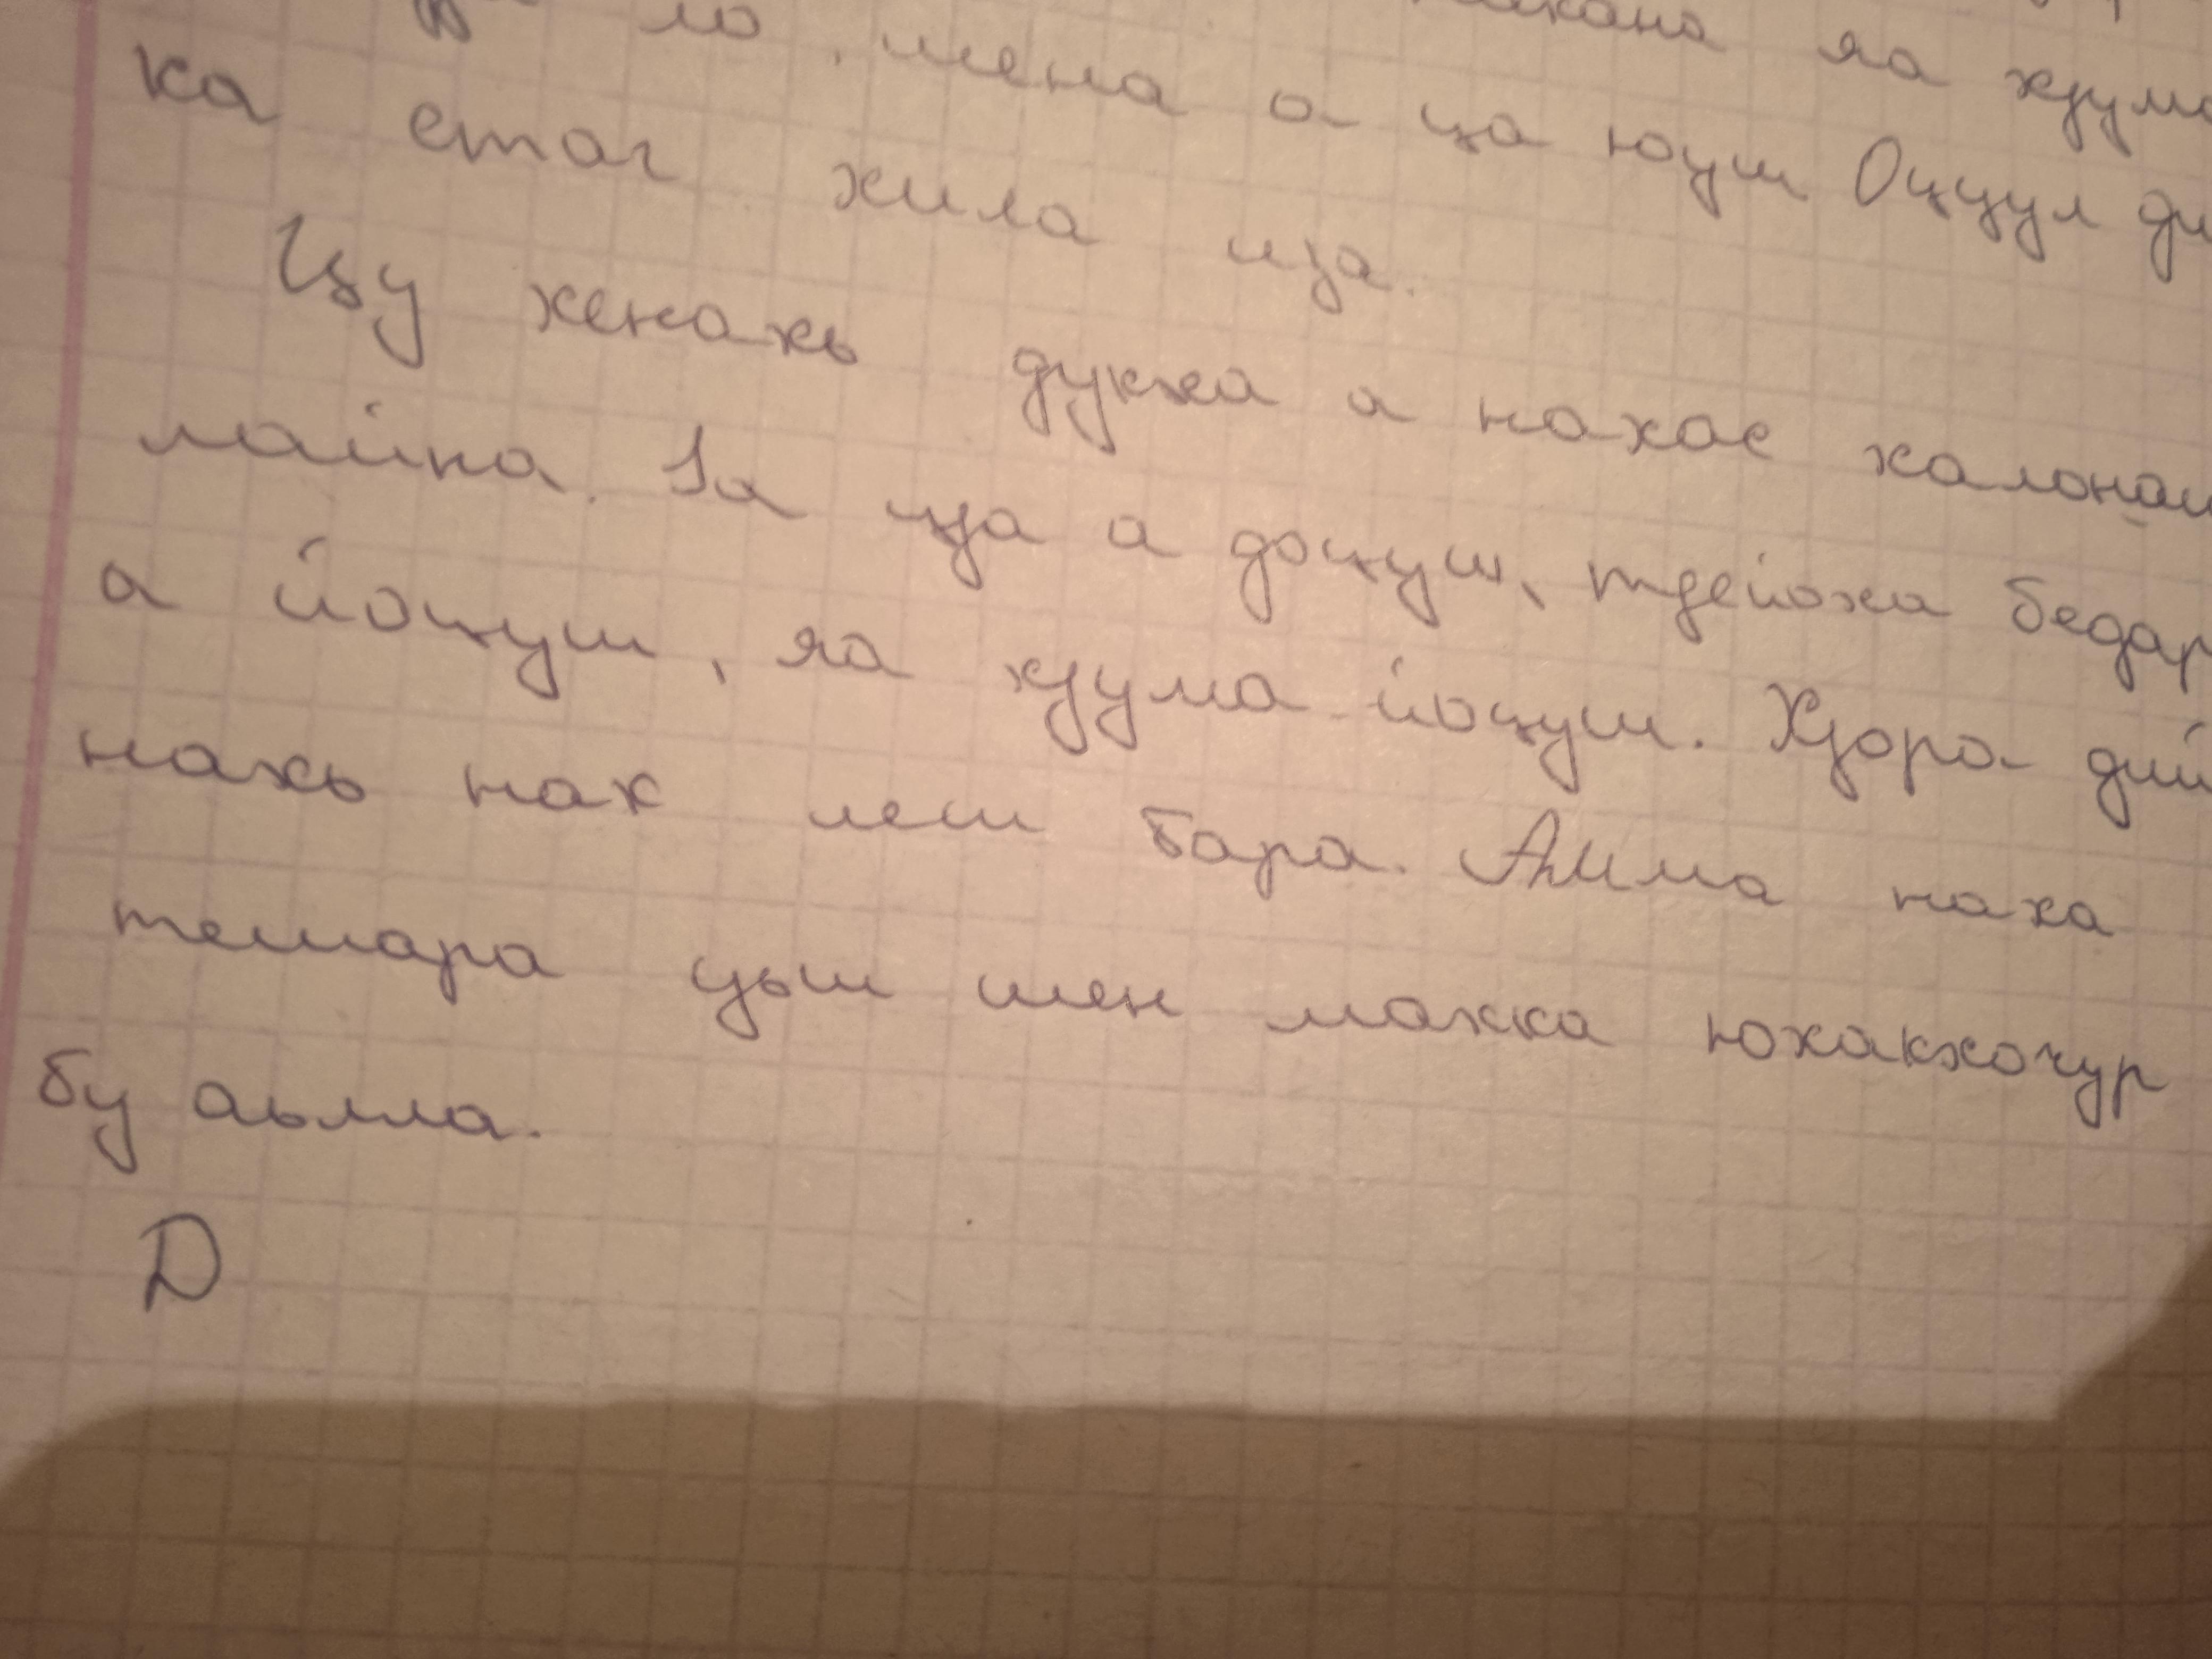 ло, шена а ца юуш Оццул ди
ка стаг хила иза.
Цу хенахь дукха а нахас халонаш
лайна. Iа ца а доцуш, тIейоха бедар
а йоцуш, яа хIума йоцуш. ХIора дий
нахь нах леш бара. Амма наха
тешара цьш шен махка юхакхочур
бу аьлла.
Д